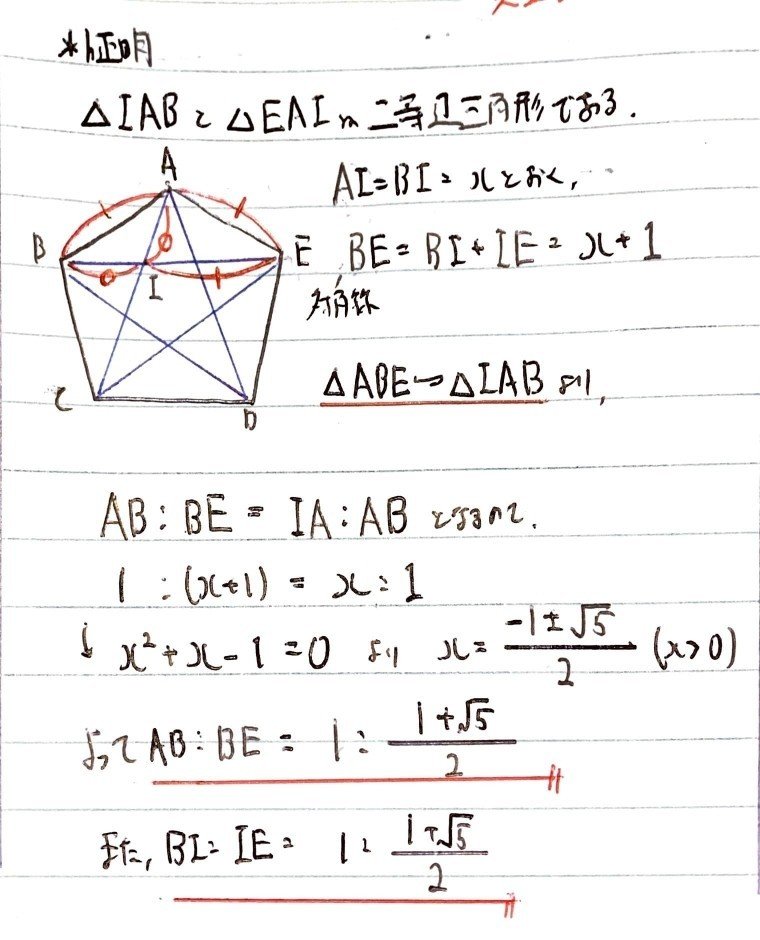 *証明
△IABと△EAIは二等辺三角形である.
A
AI=BI=xとおく,
B
E
BE=BI+IE=x+1
I
対角線
△ABE∽△IABより,
C
D
AB:BE=IA:ABとなるので.
1:(x+1)=x:1
↓ x²+x-1=0 より x=(-1±√5)/2 (x>0)
よって AB:BE=1:(1+√5)/2
また, BI:IE=1:(1+√5)/2